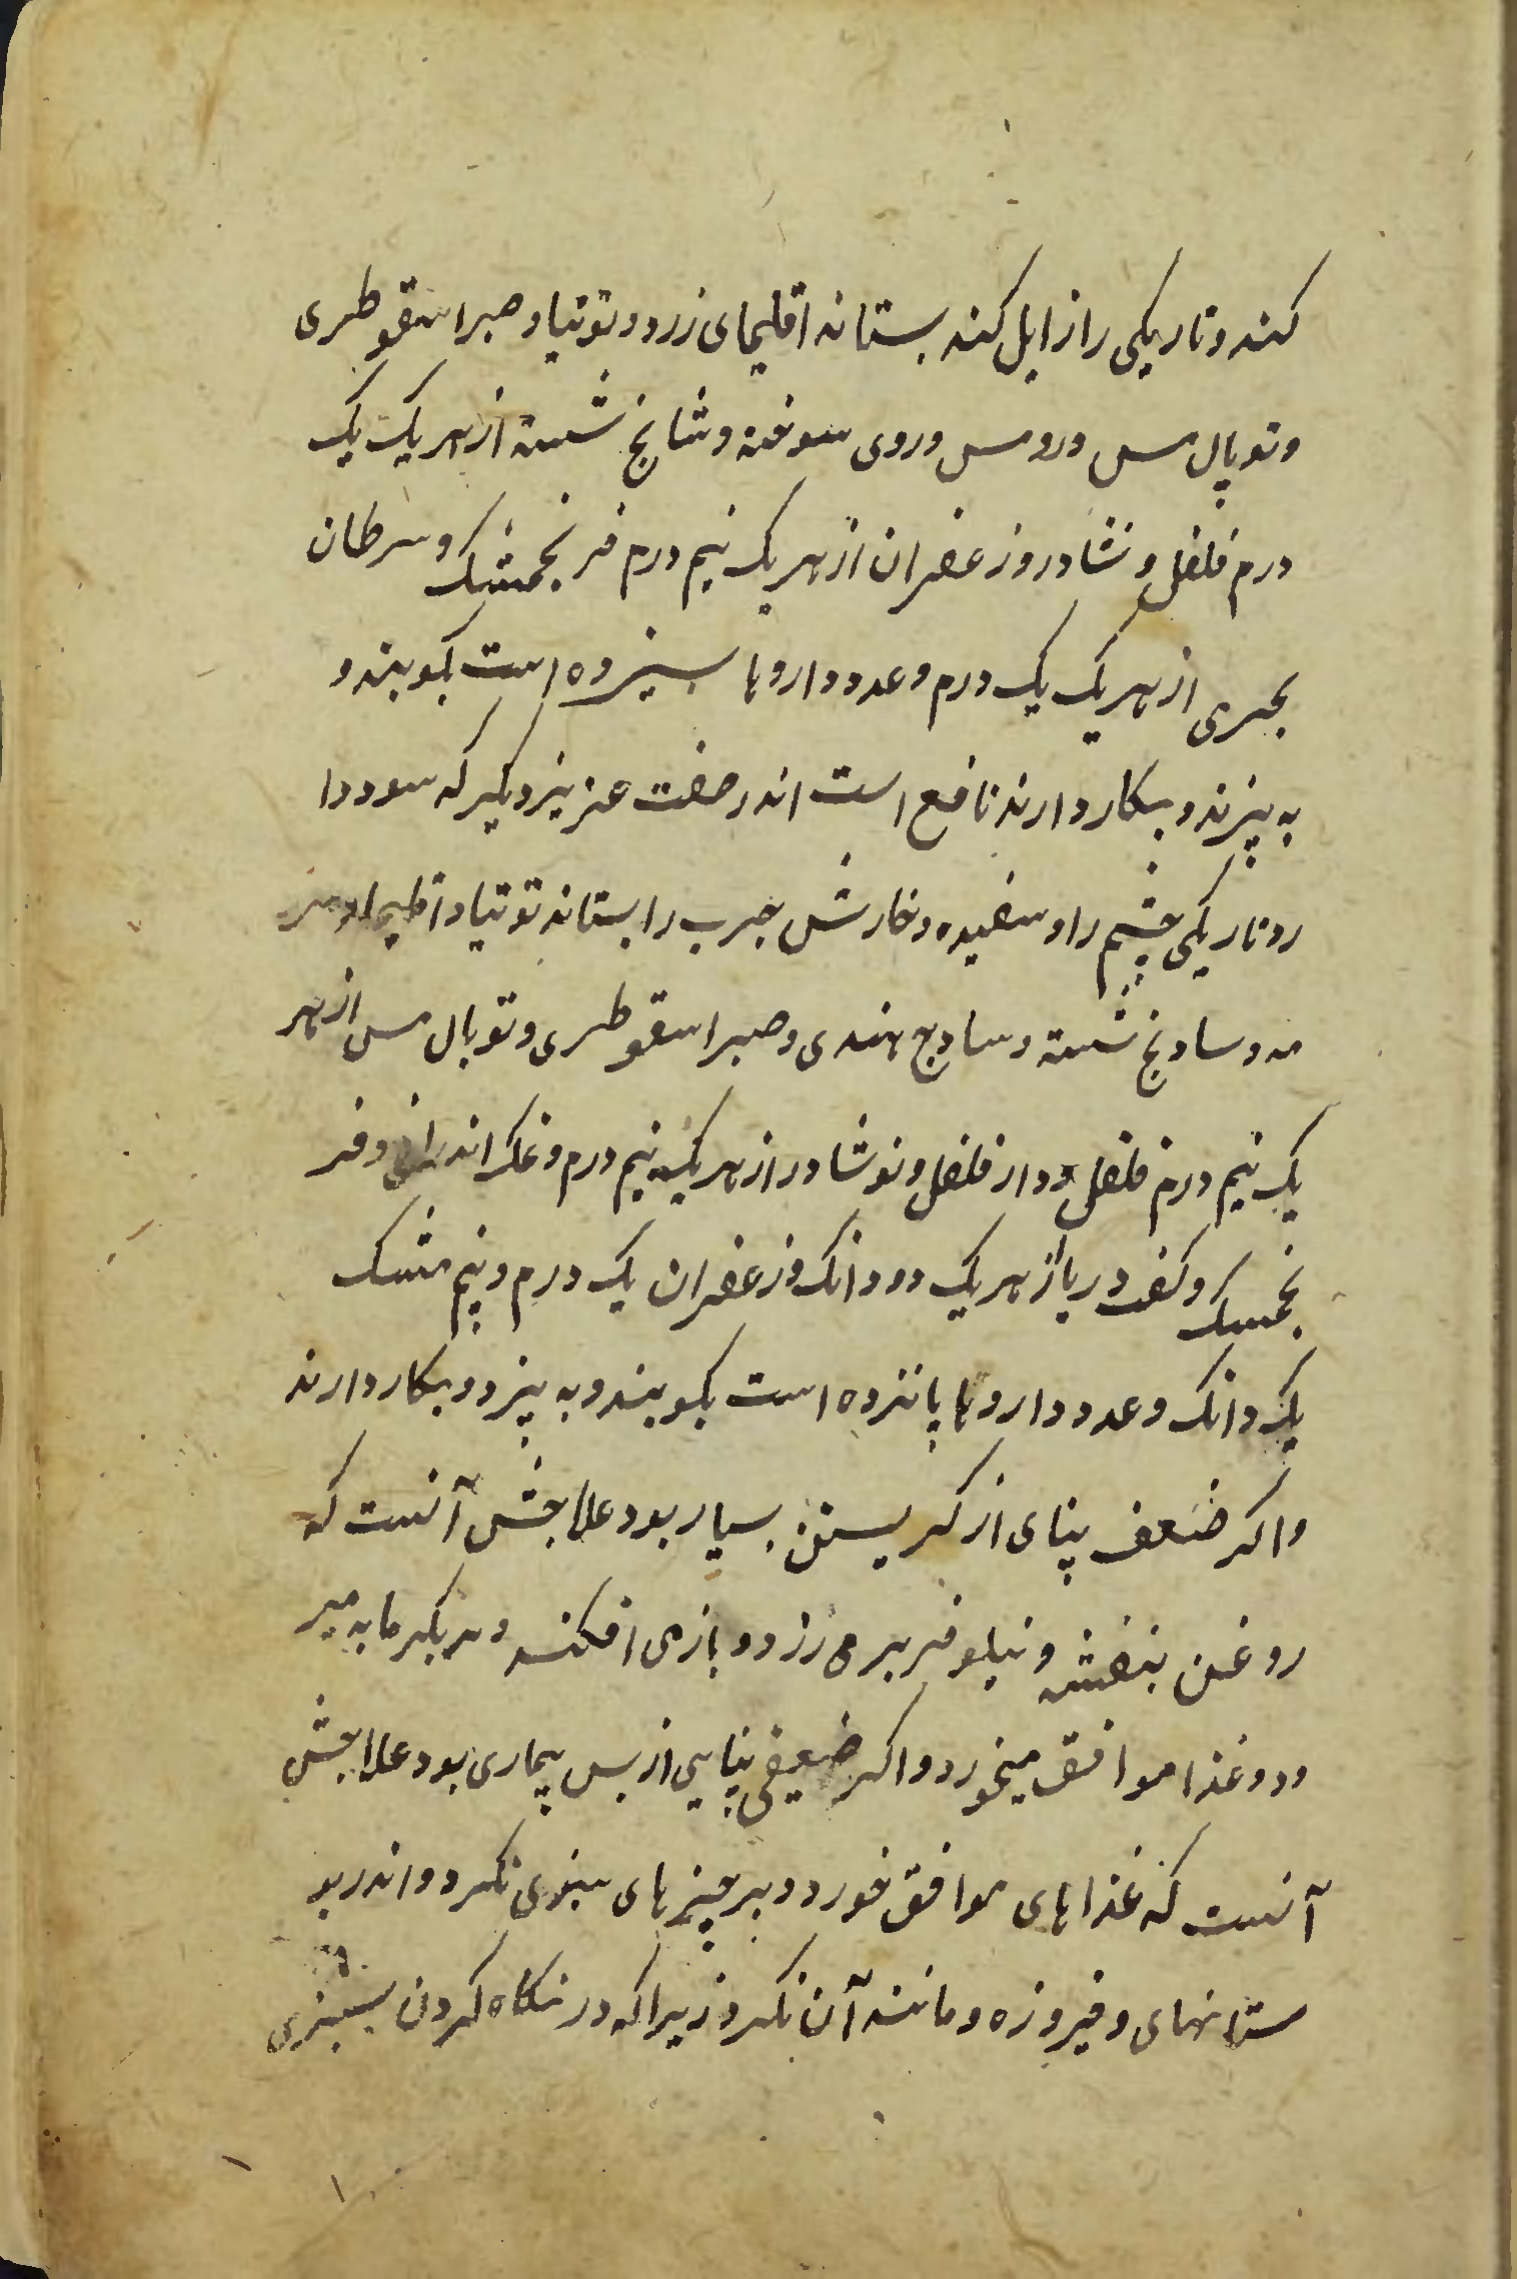 کند و تاریکی را زایل کند بستانه اقلیمای زرد و توتیا و صبر اسقوطری
و توپال مس و رومس و روی سوخته و شانج شسته از هر یک یک
درم فلفل و نشادر و زعفران از هر یک نیم درم فرنجمشک و سرطان
بحری از هر یک یک درم و عدد داروها سیزده است بکوبند و
به پیزند و بکار دارند نافع است اندر صفت عزیز دیگر که سود دا
رد تاریکی چشم را و سفیده و خارش جرب را بستانه توتیا و اقلیما و
مه و سادنج شسته و سادج هندی و صبر اسقوطری و توبال مس از هر
یک نیم درم فلفل و دار فلفل و نوشادر از هر یک نیم درم و نمک اندرانی و فر
نجمسک و کف دریا از هر یک دو دانک و زعفران یک درم و نیم مشک
یک دانک و عدد داروها پانزده است بکوبند و به پیزد و بکار دارند
و اکر ضعف بینای از کریستن بسیار بود علاجش آنست که
روغن بنفشه و نیلوفر بر می زند و بازی افکند و بکرمابه میر
ود و غذا موافق میخورد و اکر ضعیفی بینایی از پس بیماری بود علاجش
آنست که غذاهای موافق خورد و بر چیزهای سبزی نکرد و اندر بو
ستانهای و فیروزه و مانند آن نکرد زیرا که در نکاه کردن سبزی